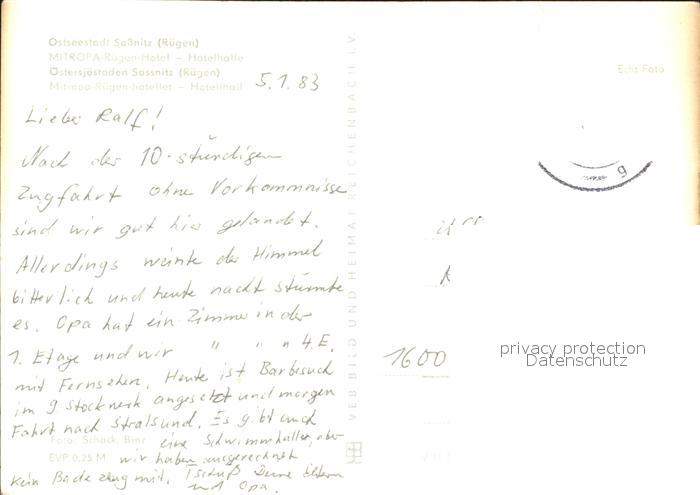 Ostseestadt Saßnitz (Rügen)
MITROPA-Rügen-Hotel – Hotelhalle
Östersjöstaden Sassnitz (Rügen)
Mitropa Rügen-hotellet – Hotellhall
5.1.83
Lieber Ralf!
Nach der 10-stündigen
Zugfahrt ohne Vorkommnisse
sind wir gut hier gelandet.
Allerdings weinte der Himmel
bitterlich und heute nacht stürmte
es. Opa hat ein Zimmer in der
1. Etage und wir " " " 4. E.
mit Fernsehen. Heute ist Barbesuch
im 9 Stockwerk angesetzt und morgen
Fahrt nach Stralsund. Es gibt auch
Foto: Schack, Binz
eine Schwimmhalle, aber
EVP 0,25 M
wir haben ausgerechnet
kein Badezeug mit. Tschüß Deine Eltern
und Opa.
VEB BILD UND HEIMAT REICHENBACH i. V.
Echt Foto
g
1600
privacy protection
Datenschutz